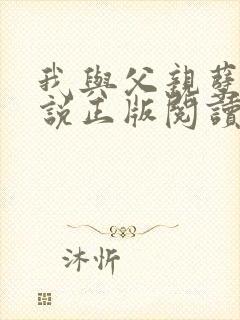 我與父親孽
説正版閱讀
沐忻